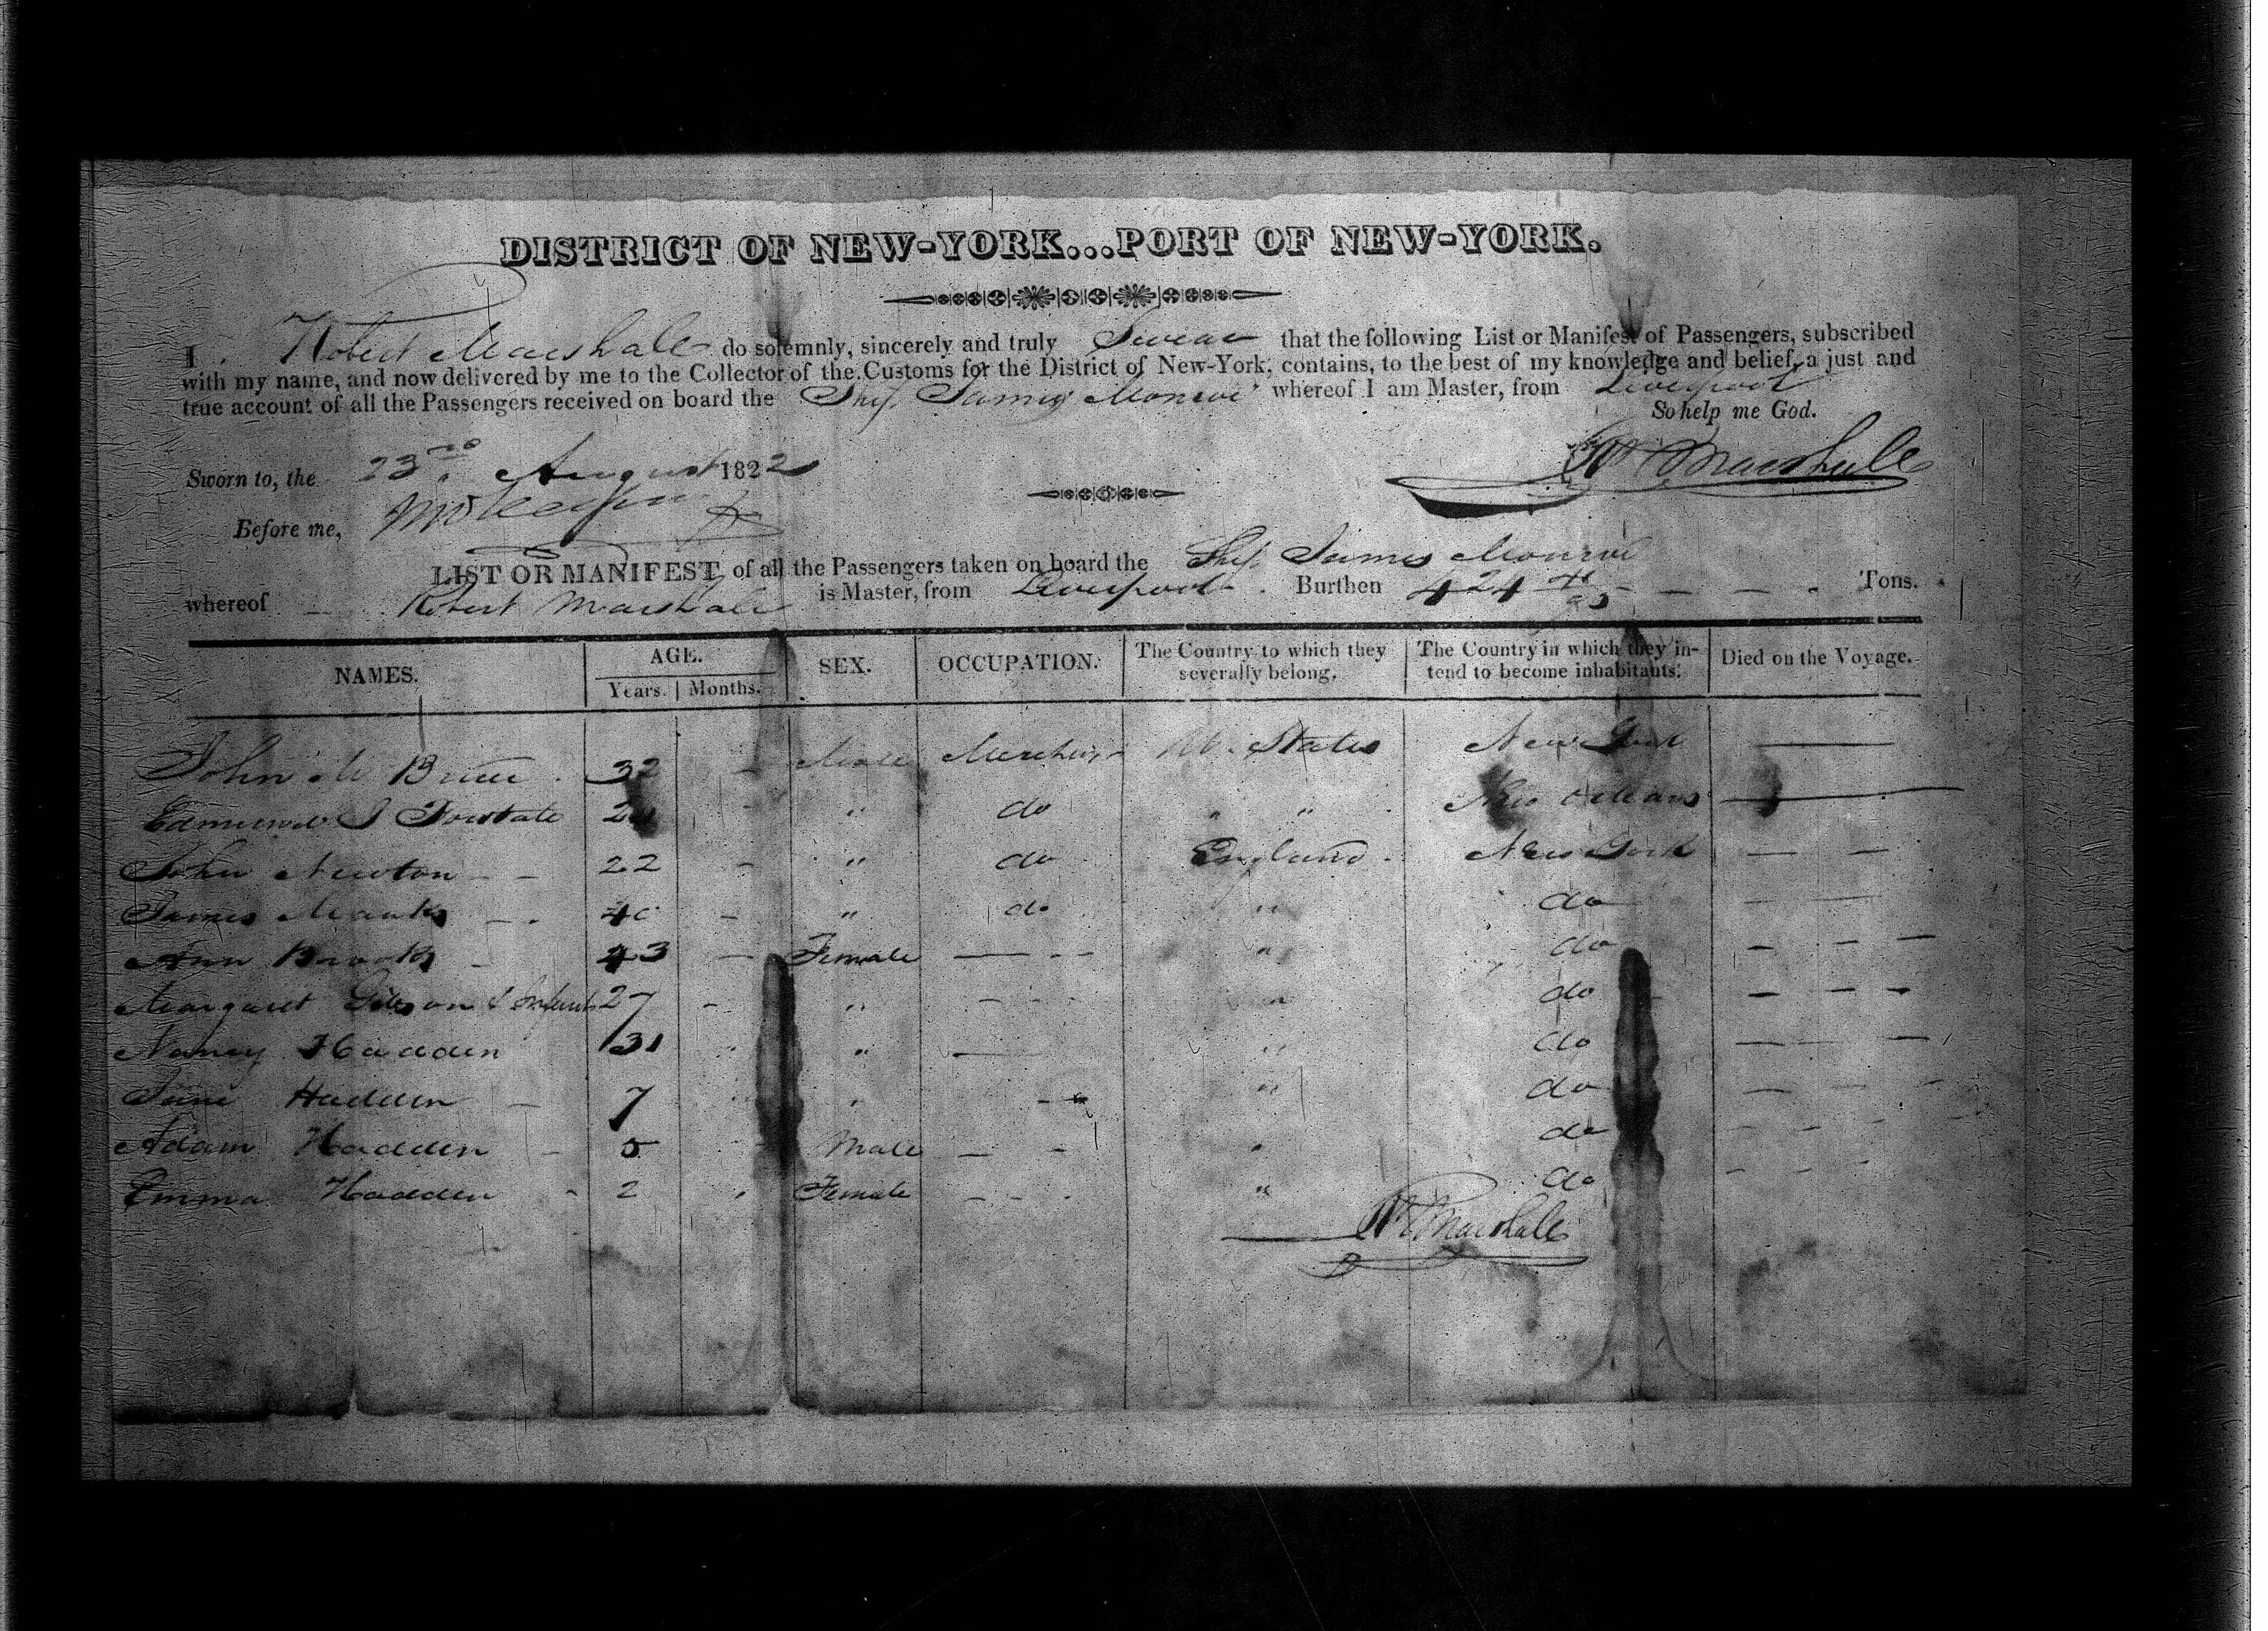 DISTRICT OF NEW-YORK...PORT OF NEW-YORK.
I Robert Marshall do solemnly, sincerely and truly Swear that the following List or Manifest of Passengers, subscribed
with my name, and now delivered by me to the Collector of the Customs for the District of New-York, contains, to the best of my knowledge and belief, a just and
true account of all the Passengers received on board the Ship James Monroe whereof I am Master, from Liverpool
So help me God.
Sworn to, the 23rd August 1822 Rt Marshall
Before me,
LIST OR MANIFEST of all the Passengers taken on board the Ship James Monroe
whereof Robert Marshall is Master, from Liverpool Burthen 424 Tons.
NAMES. AGE. Years. Months. SEX. OCCUPATION. The Country to which they severally belong. The Country in which they intend to become inhabitants. Died on the Voyage.
John 32 - Male Merchant Ut. States New York —
Edmund J - " do " " New Orleans —
John Newton - - 22 - " do England New York — —
James - . 40 - " do " do — —
Ann - 43 — Female — - - " do - — —
Margaret Gibson & Infant 27 - " - - - " do — - -
Nancy Hadden 31 " — " do — - —
Jane Hadden - 7 " - " do - - -
Adam Hadden - 5 Male — - " do - - -
Emma Hadden - 2 Female - - - " do - - -
Rt Marshall